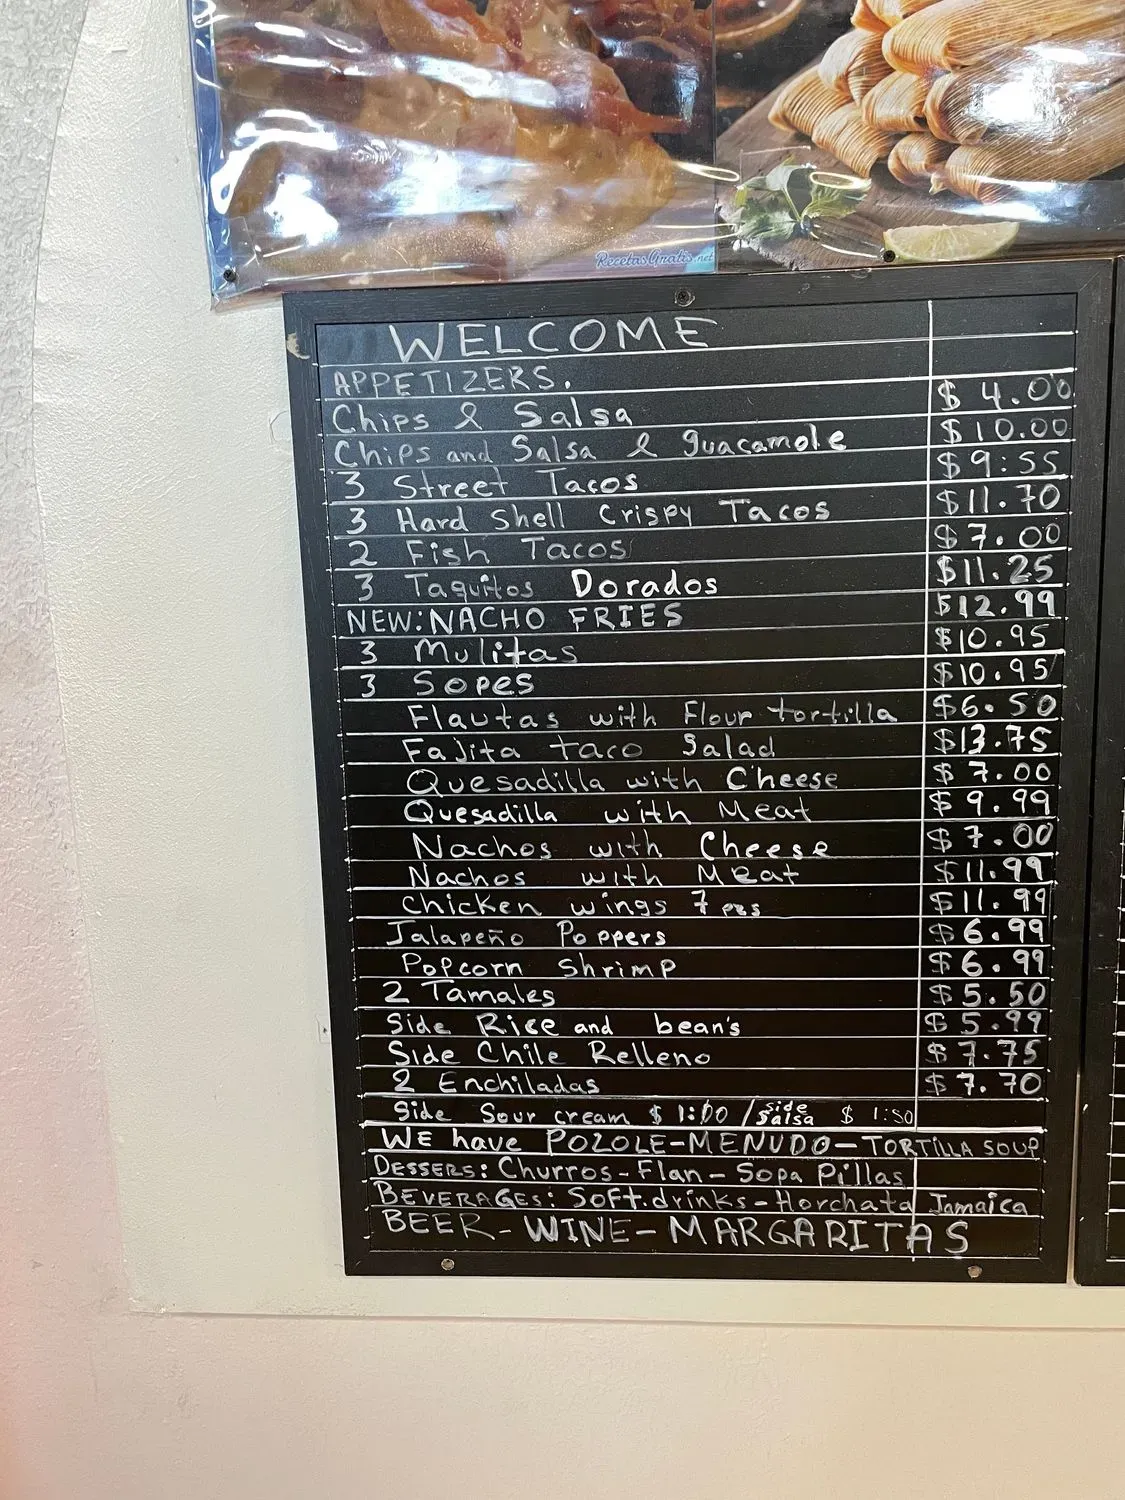 RecetasGratis.net
WELCOME
APPETIZERS.
Chips & Salsa $ 4.00
Chips and Salsa & guacamole $10.00
3 Street Tacos $9:55
3 Hard Shell Crispy Tacos $11.70
2 Fish Tacos $7.00
3 Taquitos Dorados $11.25
NEW: NACHO FRIES $12.99
3 Mulitas $10.95
3 Sopes $10.95
Flautas with Flour tortilla $6.50
Fajita taco Salad $13.75
Quesadilla with Cheese $7.00
Quesadilla with Meat $9.99
Nachos with Cheese $7.00
Nachos with Meat $11.99
chicken wings 7 pzs $11.99
Jalapeño Poppers $6.99
Popcorn Shrimp $6.99
2 Tamales $5.50
Side Rice and bean's $5.99
Side Chile Relleno $7.75
2 Enchiladas $7.70
Side Sour cream $ 1:00 / side salsa $ 1:50
WE have POZOLE-MENUDO-TORTILLA SOUP
DESSERS: Churros-Flan-Sopa Pillas
BEVERAGES: Soft.drinks-Horchata Jamaica
BEER-WINE-MARGARITAS